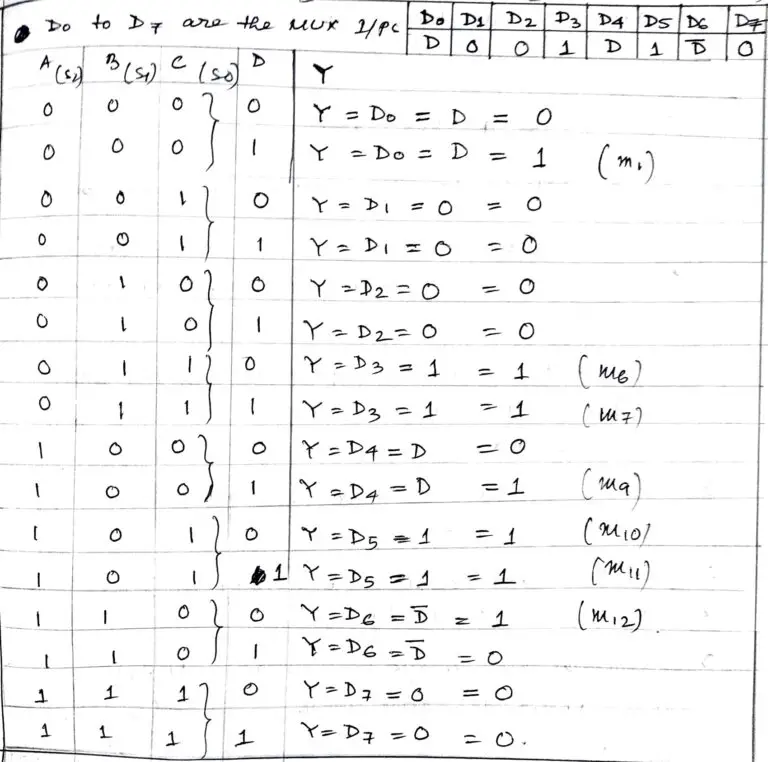 D0 to D7 are the MUX I/PC D0 D1 D2 D3 D4 D5 D6 D7
D 0 0 1 D 1 D̅ 0
A(S2) B(S1) C(S0) D Y
0 0 0 } 0 Y = D0 = D = 0
0 0 0 } 1 Y = D0 = D = 1 (m1)
0 0 1 } 0 Y = D1 = 0 = 0
0 0 1 } 1 Y = D1 = 0 = 0
0 1 0 } 0 Y = D2 = 0 = 0
0 1 0 } 1 Y = D2 = 0 = 0
0 1 1 } 0 Y = D3 = 1 = 1 (m6)
0 1 1 } 1 Y = D3 = 1 = 1 (m7)
1 0 0 } 0 Y = D4 = D = 0
1 0 0 } 1 Y = D4 = D = 1 (m9)
1 0 1 } 0 Y = D5 = 1 = 1 (m10)
1 0 1 } 1 Y = D5 = 1 = 1 (m11)
1 1 0 } 0 Y = D6 = D̅ = 1 (m12)
1 1 0 } 1 Y = D6 = D̅ = 0
1 1 1 } 0 Y = D7 = 0 = 0
1 1 1 } 1 Y = D7 = 0 = 0.